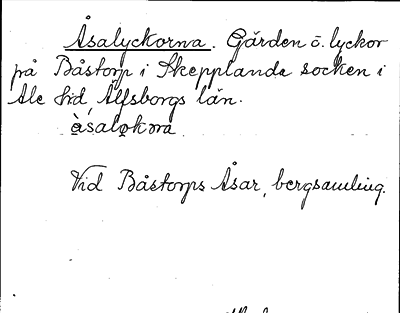 Åsalyckorna. Gärden o. lyckor
på Båstorp i Skepplanda socken i
Ale hd, Älfsborgs län.
àsalọkơra
Vid Båstorps Åsar, bergsamling.